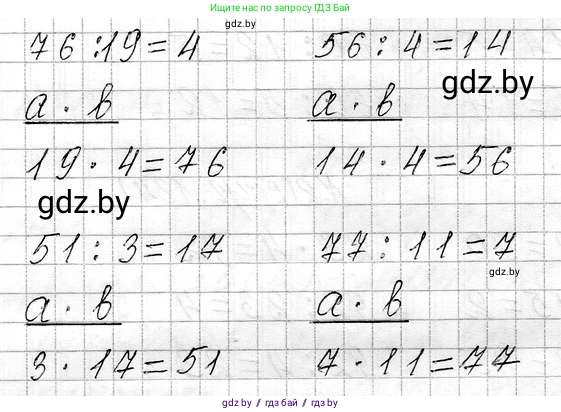 Ищите нас на сайте ГДЗ Бай
gdz.by
76 : 19 = 4 56 : 4 = 14
gdz.by
а · в а · в
19 · 4 = 76 14 · 4 = 56
gdz.by
51 : 3 = 17 77 : 11 = 7
gdz.by
а · в а · в
3 · 17 = 51 7 · 11 = 77
gdz.by / гдз бай / gdz.by